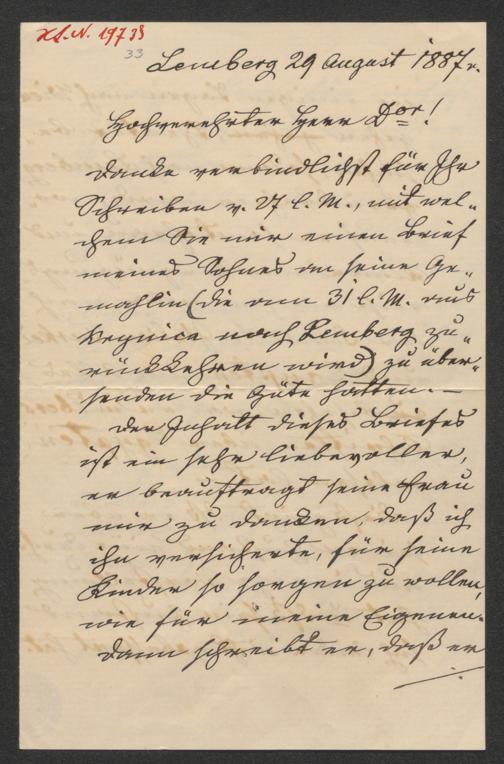 H.I.N. 19733
33
Lemberg 29 August 1887.
Hochverehrter Herr Dor!
Danke verbindlichst für Ihr
Schreiben v. 27 l. M., mit wel-
chem Sie mir einen Brief
meines Sohnes an seine Ge-
mahlin (die am 31 l. M. aus
Krynica nach Lemberg zu-
rückkehren wird) zu über-
senden die Güte hatten. —
Der Inhalt dieses Briefes
ist ein sehr liebevoller,
er beauftragt seine Frau
mir zu danken, daß ich
ihn versicherte, für seine
Kinder so sorgen zu wollen,
wie für meine Eigenen.
Dann schreibt er, daß er